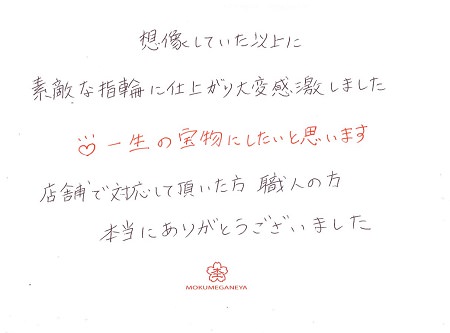 想像していた以上に
素敵な指輪に仕上がり大変感激しました
♡一生の宝物にしたいと思います
店舗で対応して頂いた方 職人の方
本当にありがとうございました
MOKUMEGANEYA